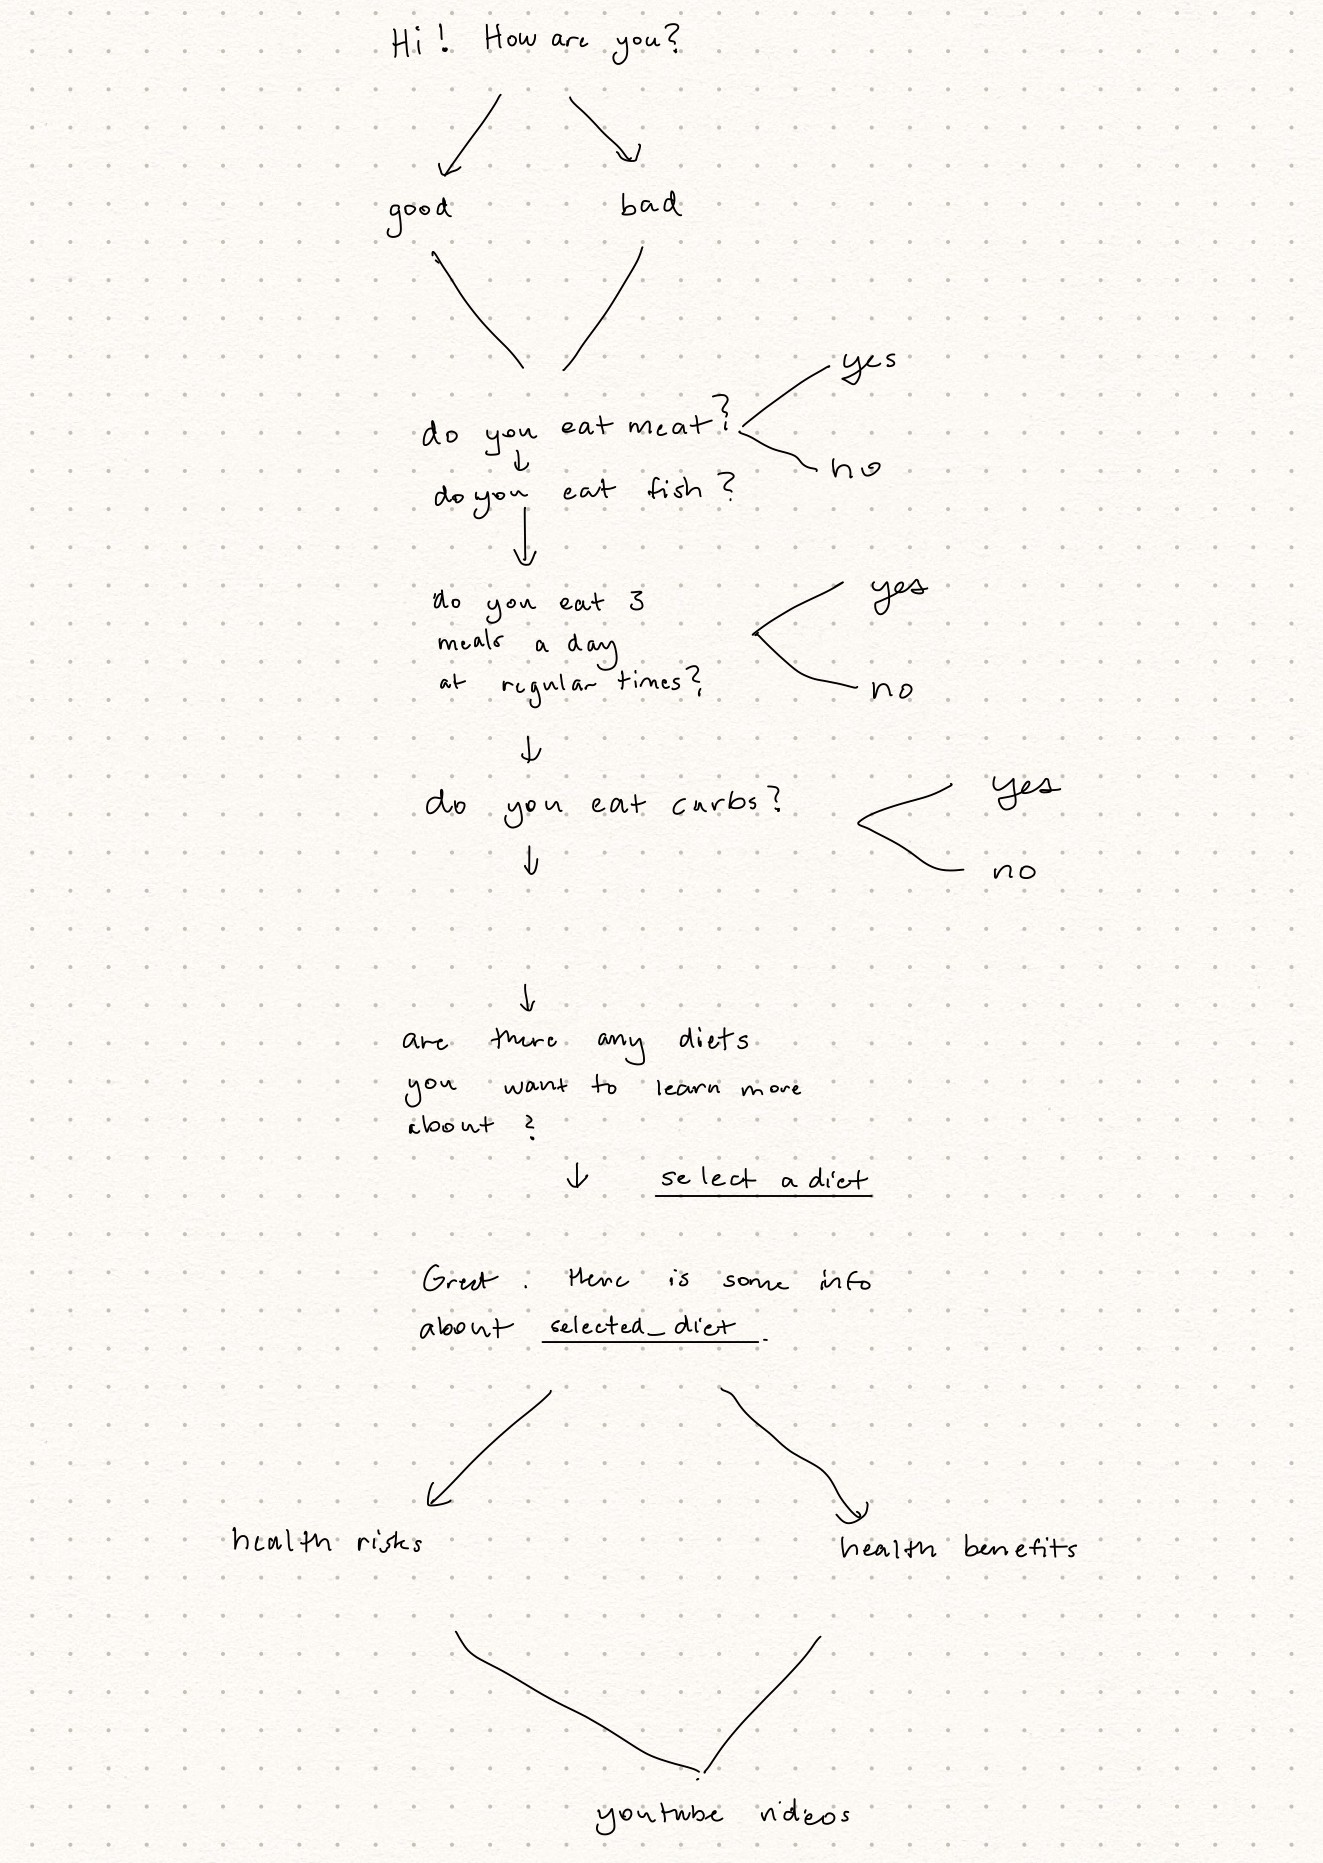 Hi! How are you?
good
bad
yes
do you eat meat?
no
do you eat fish?
do you eat 3
yes
meals a day
at regular times?
no
do you eat carbs?
yes
no
are there any diets
you want to learn more
about?
select a diet
Great. Here is some info
about selected_diet.
health risks
health benefits
youtube videos